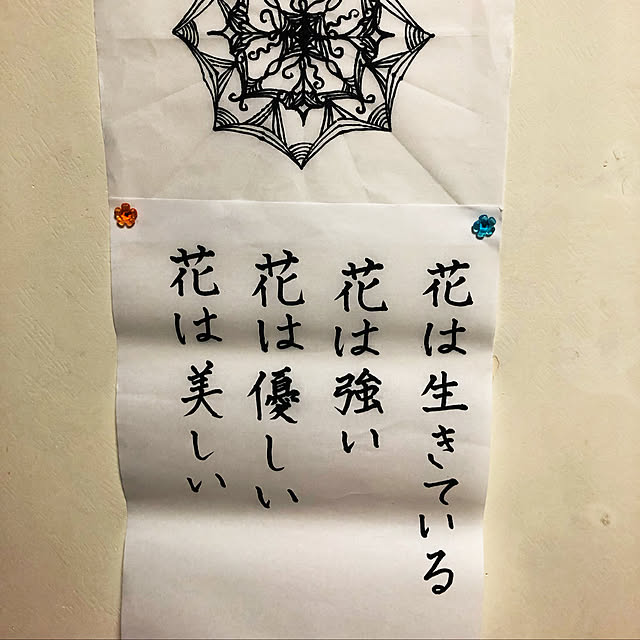 花は生きている
花は強い
花は優しい
花は美しい